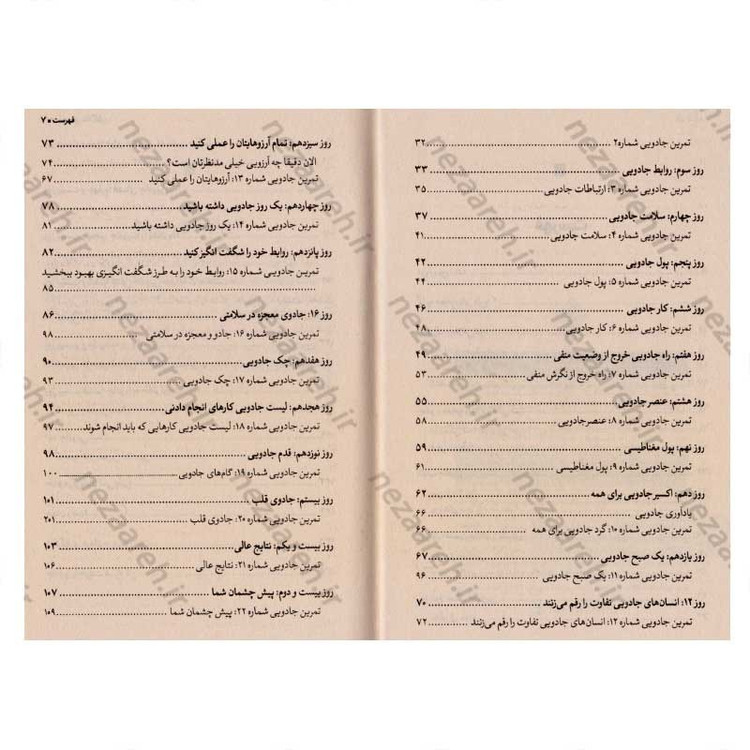 تمرین جادویی شماره۲ ........ ۳۲
روز سوم: روابط جادویی ........ ۳۳
تمرین جادویی شماره ۳: ارتباطات جادویی ........ ۳۵
روز چهارم: سلامت جادویی ........ ۳۷
تمرین جادویی شماره ۴: سلامت جادویی ........ ۴۱
روز پنجم: پول جادویی ........ ۴۲
تمرین جادویی شماره ۵: پول جادویی ........ ۴۴
روز ششم: کار جادویی ........ ۴۶
تمرین جادویی شماره ۶: کار جادویی ........ ۴۸
روز هفتم: راه جادویی خروج از وضعیت منفی ........ ۴۹
تمرین جادویی شماره ۷: راه خروج از نگرش منفی ........ ۵۳
روز هشتم: عنصر جادویی ........ ۵۵
تمرین جادویی شماره ۸: عنصرجادویی ........ ۵۸
روز نهم: پول مغناطیسی ........ ۵۹
تمرین جادویی شماره ۹: پول مغناطیسی ........ ۶۱
روز دهم: اکسیر جادویی برای همه ........ ۶۲
یادآوری جادویی ........ ۶۶
تمرین جادویی شماره ۱۰: گرد جادویی برای همه ........ ۶۶
روز یازدهم: یک صبح جادویی ........ ۶۷
تمرین جادویی شماره ۱۱: یک صبح جادویی ........ ۹۶
روز ۱۲: انسان‌های جادویی تفاوت را رقم می‌زنند ........ ۷۰
تمرین جادویی شماره ۱۲: انسان‌های جادویی تفاوت را رقم می‌زنند ........ ۷۲
فهرست ■ ۷
روز سیزدهم: تمام آرزوهایتان را عملی کنید ........ ۷۳
الان دقیقا چه آرزویی خیلی مدنظرتان است؟ ........ ۷۴
تمرین جادویی شماره ۱۳: آرزوهایتان را عملی کنید ........ ۶۷
روز چهاردهم: یک روز جادویی داشته باشید ........ ۷۸
تمرین جادویی شماره ۱۴: یک روز جادویی داشته باشید ........ ۸۱
روز پانزدهم: روابط خود را شگفت انگیز کنید ........ ۸۲
تمرین جادویی شماره ۱۵: روابط خود را به طرز شگفت انگیزی بهبود ببخشید
........ ۸۵
روز ۱۶: جادوی معجزه در سلامتی ........ ۸۶
تمرین جادویی شماره ۱۶: جادو و معجزه در سلامتی ........ ۹۸
روز هفدهم: چک جادویی ........ ۹۰
تمرین جادویی شماره ۱۷: چک جادویی ........ ۹۳
روز هجدهم: لیست جادویی کارهای انجام دادنی ........ ۹۴
تمرین جادویی شماره ۱۸: لیست جادویی کارهایی که باید انجام شوند ........ ۹۷
روز نوزدهم: قدم جادویی ........ ۹۸
تمرین جادویی شماره ۱۹: گام‌های جادویی ........ ۱۰۰
روز بیستم: جادوی قلب ........ ۱۰۱
تمرین جادویی شماره ۲۰: جادوی قلب ........ ۲۰۱
روز بیست و یکم: نتایج عالی ........ ۱۰۳
تمرین جادویی شماره ۲۱: نتایج عالی ........ ۱۰۶
روز بیست و دوم: پیش چشمان شما ........ ۱۰۷
تمرین جادویی شماره ۲۲: پیش چشمان شما ........ ۱۰۹
nezaareh.ir